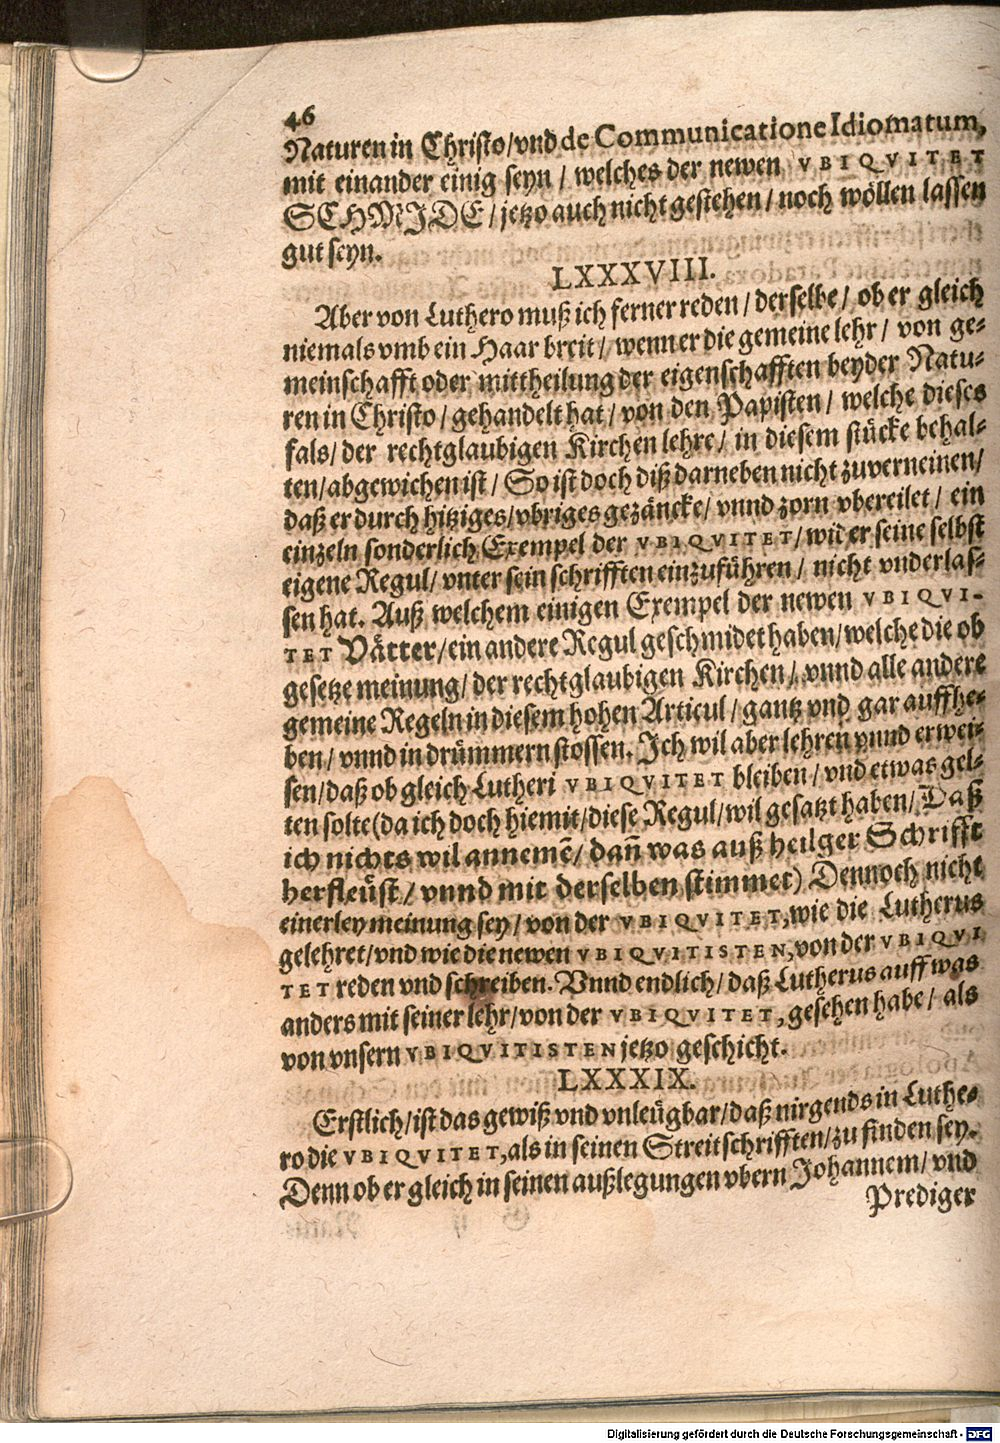 46
Naturen in Christo/vnd de Communicatione Idiomatum,
mit einander einig seyn / welches der newen VBIQVITET
SCHMIDE / jetzo auch nicht gestehen / noch wöllen lassen
gut seyn.
LXXXVIII.
Aber von Luthero muß ich ferner reden / derselbe / ob er gleich
niemals vmb ein Haar breit / wenn er die gemeine lehr / von ge-
meinschafft oder mittheilung der eigenschafften beyder Natu-
ren in Christo / gehandelt hat / von den Papisten / welche dieses
fals / der rechtglaubigen Kirchen lehre / in diesem stücke behal-
ten / abgewichen ist / So ist doch diß darneben nicht zuverneinen /
daß er durch hitziges / vbriges gezäncke / vnnd zorn vbereilet / ein
einzeln sonderlich Exempel der VBIQVITET / wider seine selbst
eigene Regul / vnter sein schrifften einzuführen / nicht vnderlas-
sen hat. Auß welchem einigen Exempel der newen VBIQVI-
TET Vätter / ein andere Regul geschmidet haben / welche die ob
gesetze meinung / der rechtglaubigen Kirchen / vnnd alle andere
gemeine Regeln in diesem hohen Articul / gantz vnd gar auffhe-
ben / vnnd in drümmern stossen. Ich wil aber lehren vnnd erwei-
sen / daß ob gleich Lutheri VBIQVITET bleiben / vnd etwas gel-
ten solte (da ich doch hiemit / diese Regul / wil gesatzt haben / Daß
ich nichts wil annemẽ / dañ was auß heilger Schrifft
herfleüst / vnnd mit derselben stimmet) Dennoch nicht
einerley meinung sey / von der VBIQVITET, wie die Lutherus
gelehret / vnd wie die newen VBIQVITISTEN, von der VBIQVI
TET reden vnd schreiben. Vnnd endlich / daß Lutherus auff was
anders mit seiner lehr / von der VBIQVITET, gesehen habe / als
von vnsern VBIQVITISTEN jetzo geschicht.
LXXXIX.
Erstlich / ist das gewiß vnd vnleügbar / daß nirgends in Luthe-
ro die VBIQVITET, als in seinen Streitschrifften / zu finden sey.
Denn ob er gleich in seinen außlegungen vbern Johannem / vnd
Prediger
Digitalisierung gefördert durch die Deutsche Forschungsgemeinschaft - DFG